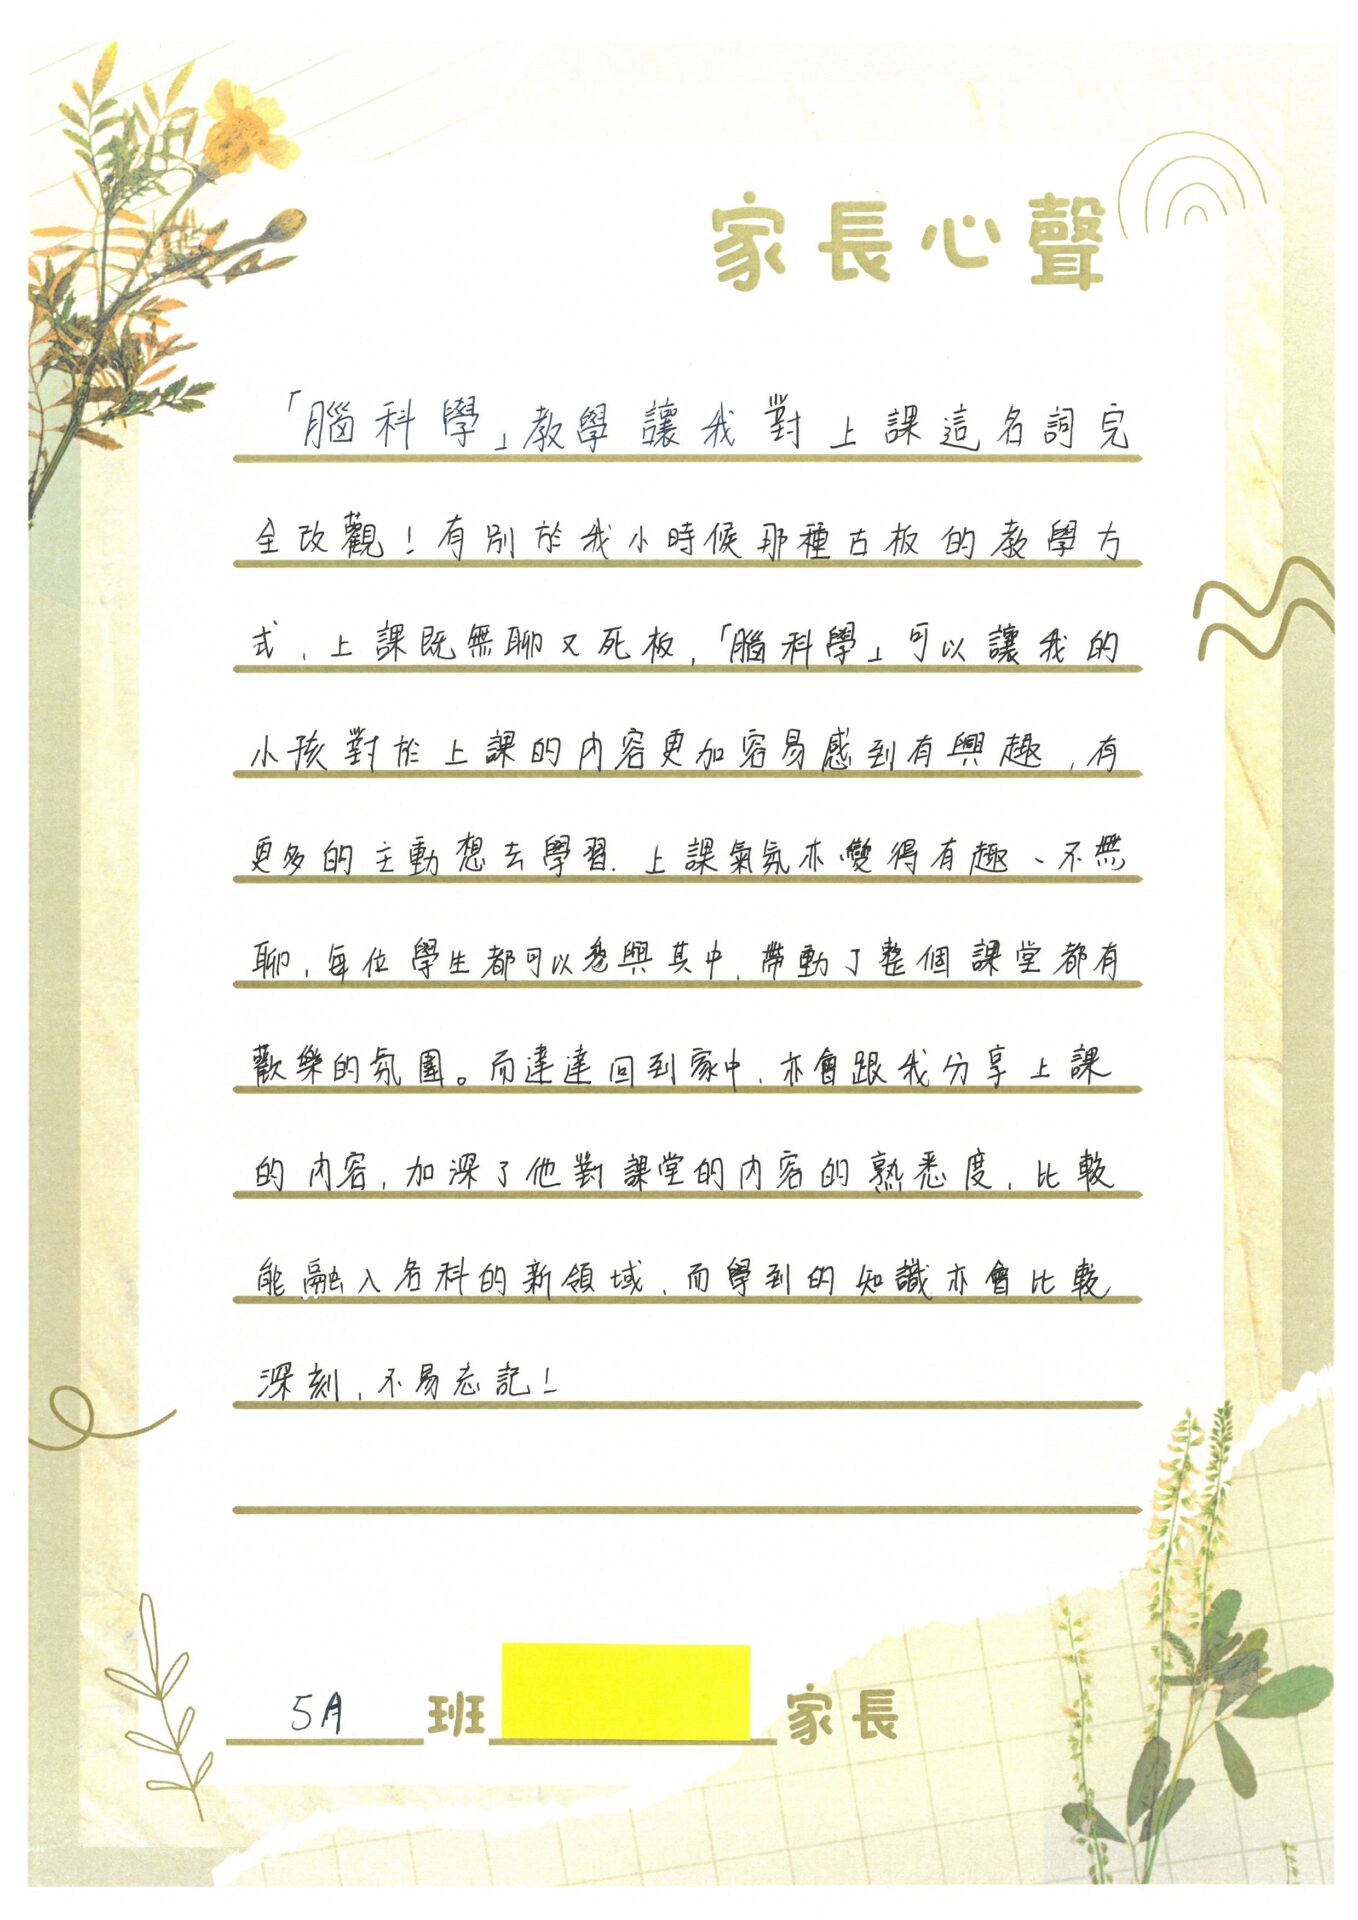 家長心聲
「腦科學」教學讓我對上課這名詞完
全改觀！有別於我小時候那種古板的教學方
式，上課既無聊又死板，「腦科學」可以讓我的
小孩對於上課的內容更加容易感到有興趣，有
更多的主動想去學習，上課氣氛亦變得有趣、不無
聊，每位學生都可以參與其中，帶動了整個課堂都有
歡樂的氛圍。而達達回到家中，亦會跟我分享上課
的內容，加深了他對課堂的內容的熟悉度，比較
能融入各科的新領域，而學到的知識亦會比較
深刻，不易忘記！
5A 班 家長